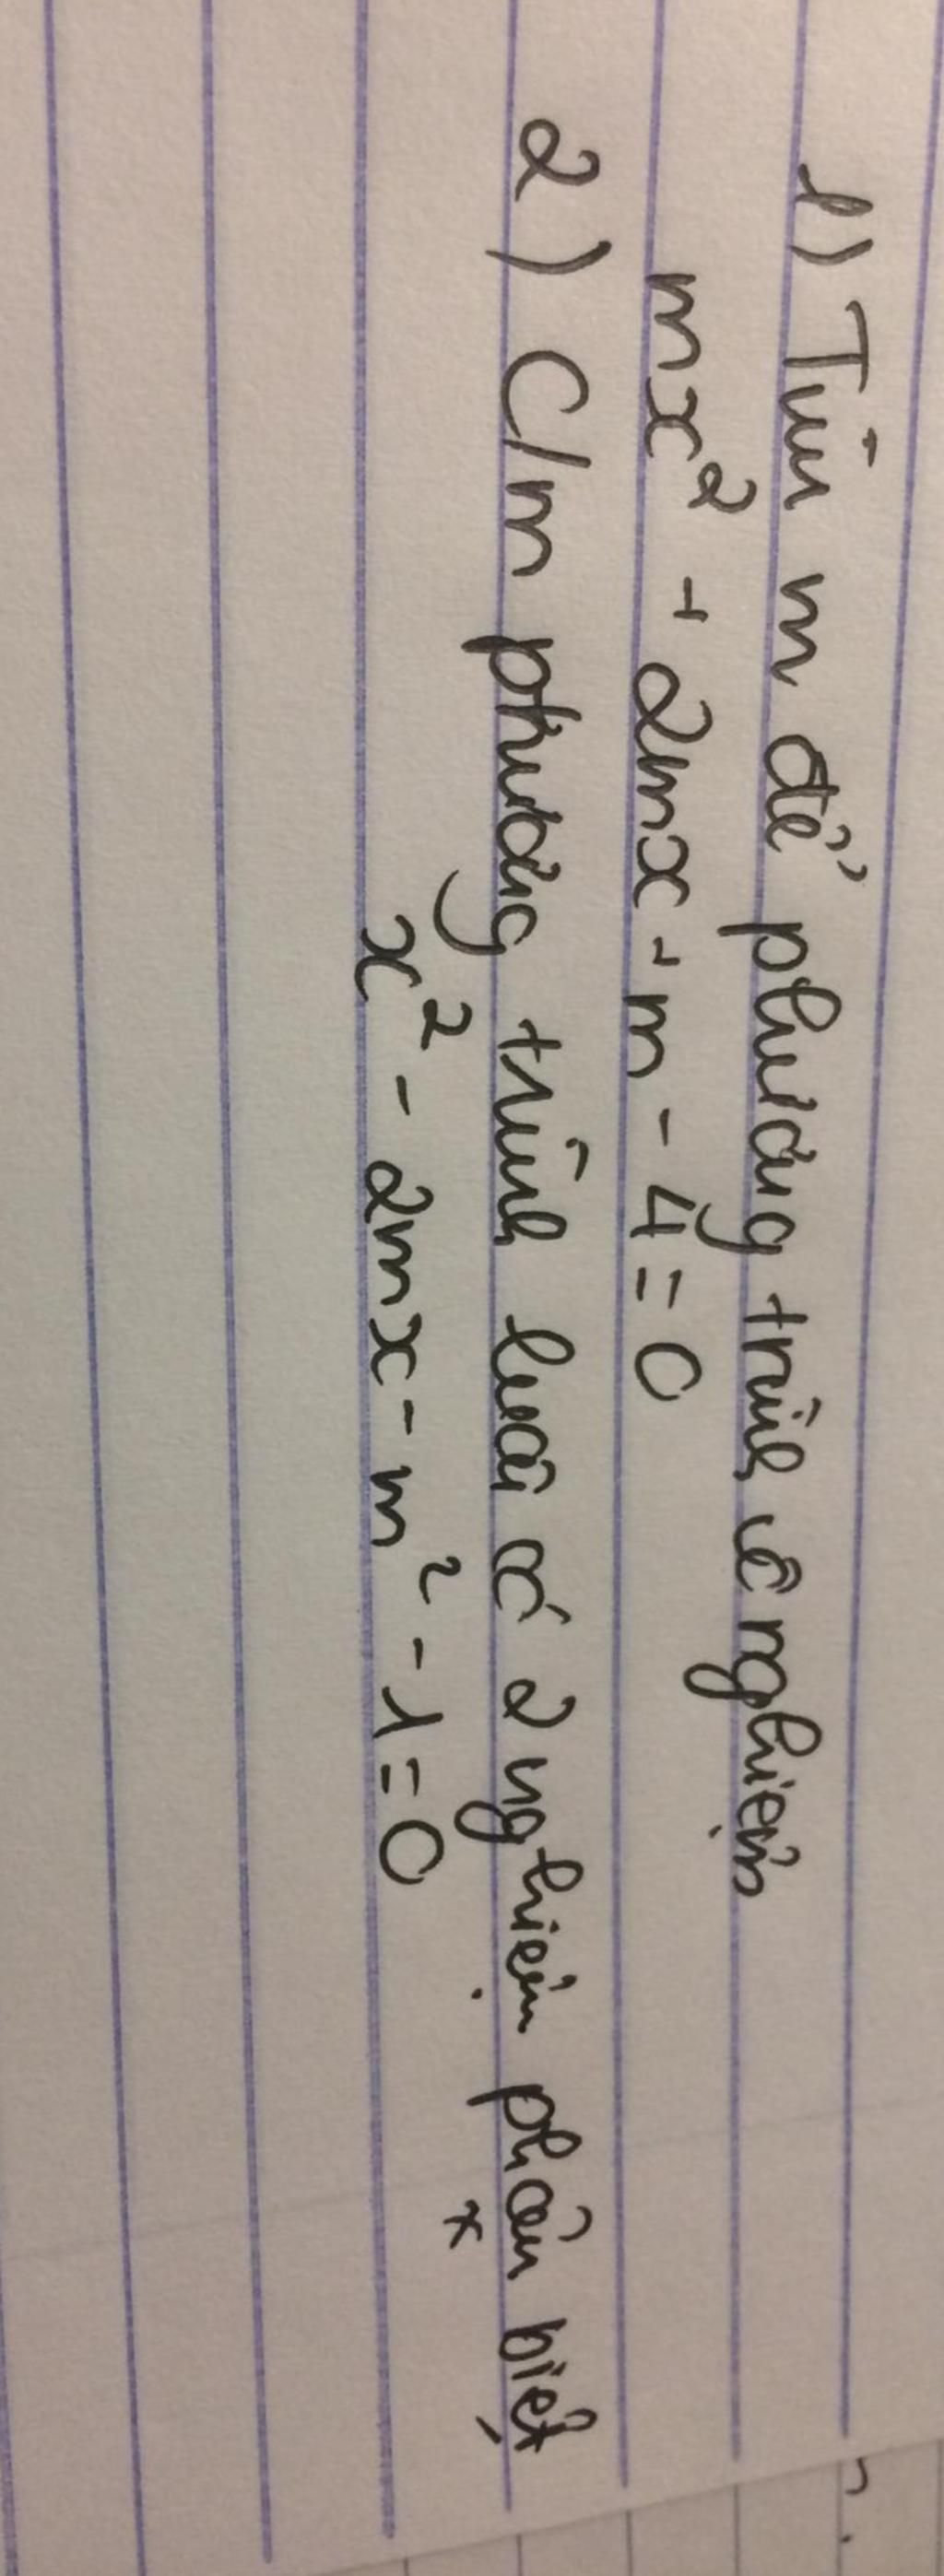 1) Tìm m để phương trình vô nghiệm
mx² + 2mx + m - 4 = 0
2) C/m phương trình luôn có 2 nghiệm phân biệt
x² - 2mx - m² - 1 = 0